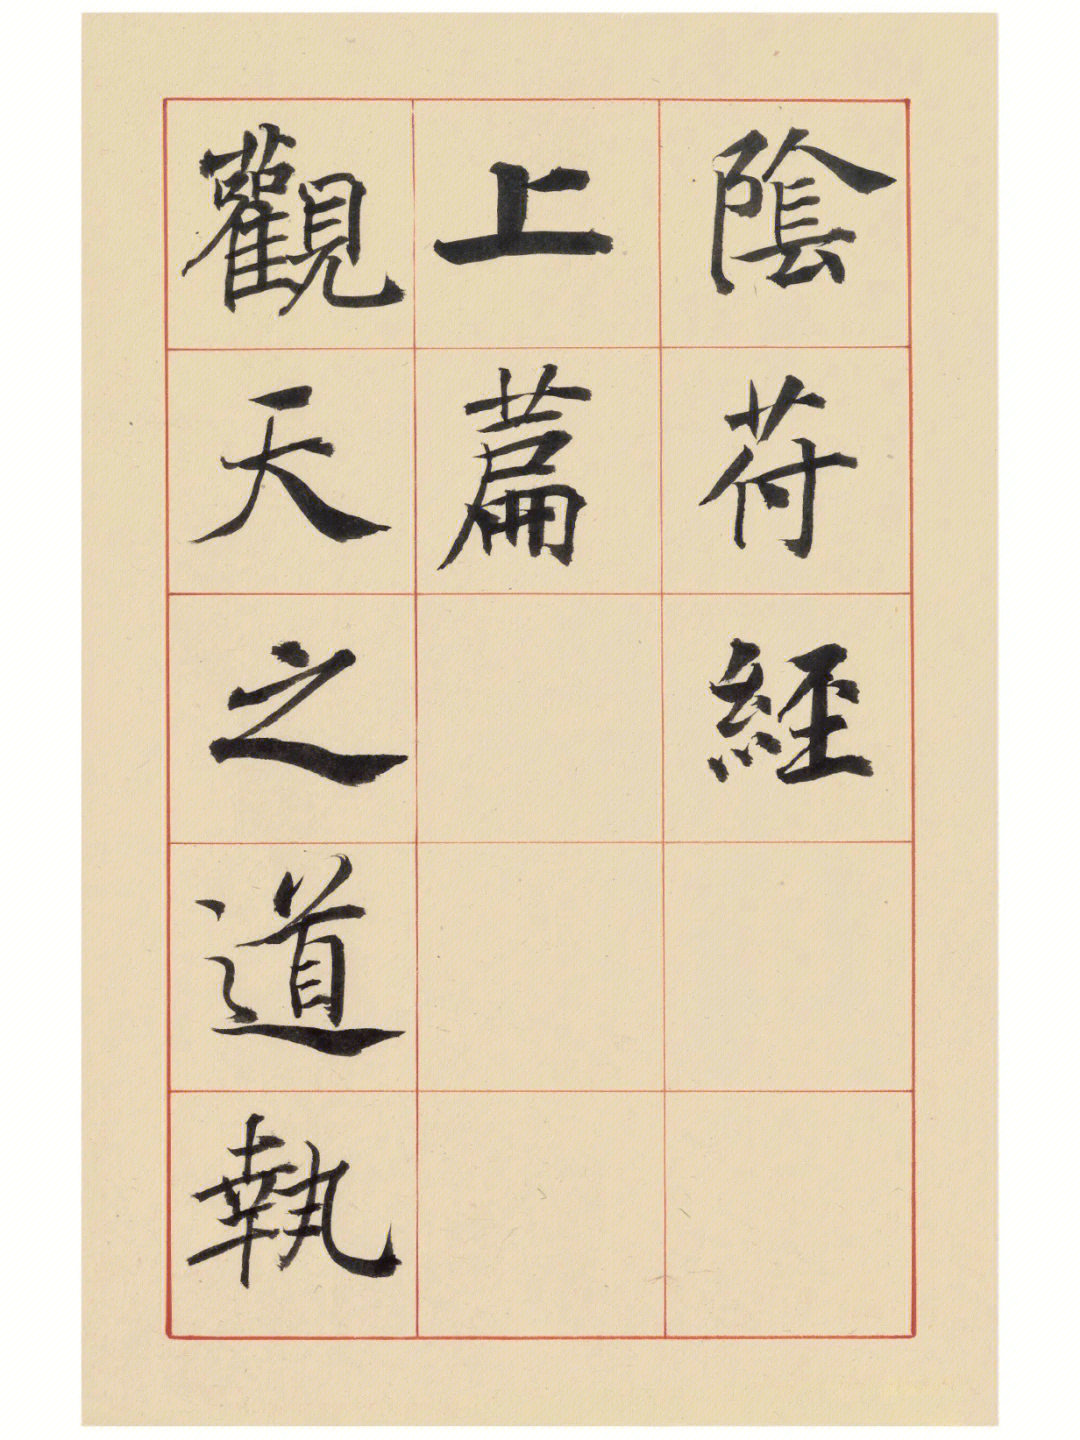 陰符經
上篇
觀天之道執